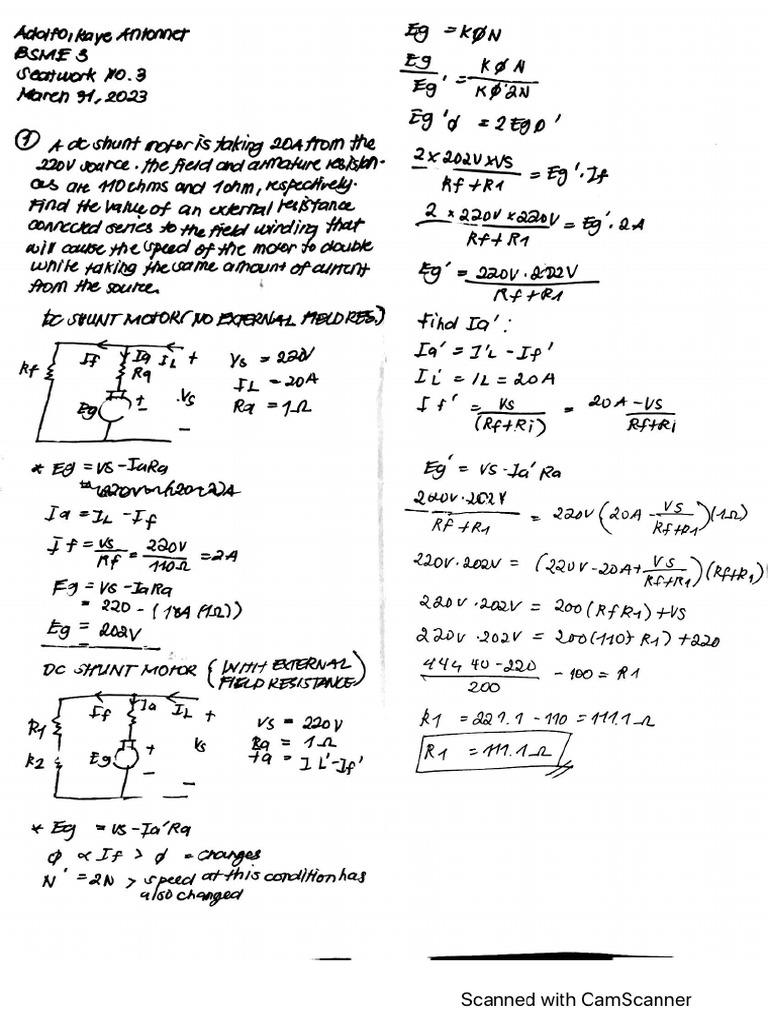 Adolfo, Kaye Antonnet
BSME 3
Seatwork No. 3
March 31, 2023
① A dc shunt motor is taking 20A from the
220V source. The field and armature resistan-
ces are 110 ohms and 1 ohm, respectively.
Find the value of an external resistance
connected series to the field winding that
will cause the speed of the motor to double
while taking the same amount of current
from the source.
DC SHUNT MOTOR (NO EXTERNAL FIELD RES.)
Rf If Ia IL +
Ra
Eg + Vs
-
Vs = 220V
IL = 20A
Ra = 1Ω
* Eg = Vs - IaRa
Ia = IL - If
If = Vs/Rf = 220V/110Ω = 2A
Eg = Vs - IaRa
= 220 - (18A (1Ω))
Eg = 202V
DC SHUNT MOTOR (WITH EXTERNAL
FIELD RESISTANCE)
R1 If Ia IL +
R2 Eg + Vs
-
Vs = 220V
Ra = 1Ω
Ia = IL'-If'
* Eg = Vs - Ia'Ra
φ ∝ If > φ = changes
N' = 2N > speed at this condition has
also changed
Eg = KφN
Eg/Eg' = KφN/Kφ'2N
Eg'φ = 2Egφ'
2 x 202V x VS / Rf + R1 = Eg' · If
2 x 220V x 220V / Rf + R1 = Eg' · 2A
Eg' = 220V · 202V / Rf + R1
Find Ia':
Ia' = I'L - If'
IL' = IL = 20A
If' = VS/(Rf+Ri) = 20A - VS/Rf+Ri
Eg' = VS - Ia' Ra
200V · 202V / Rf + R1 = 220V (20A - VS/Rf+R1)(1Ω)
220V · 202V = (220V - 20A + VS/Rf+R1)(Rf+R1)
220V · 202V = 200(Rf R1) + VS
220V · 202V = 200(110) R1) + 220
444 40 - 220 / 200 - 100 = R1
R1 = 221.1 - 110 = 111.1Ω
R1 = 111.1Ω
Scanned with CamScanner